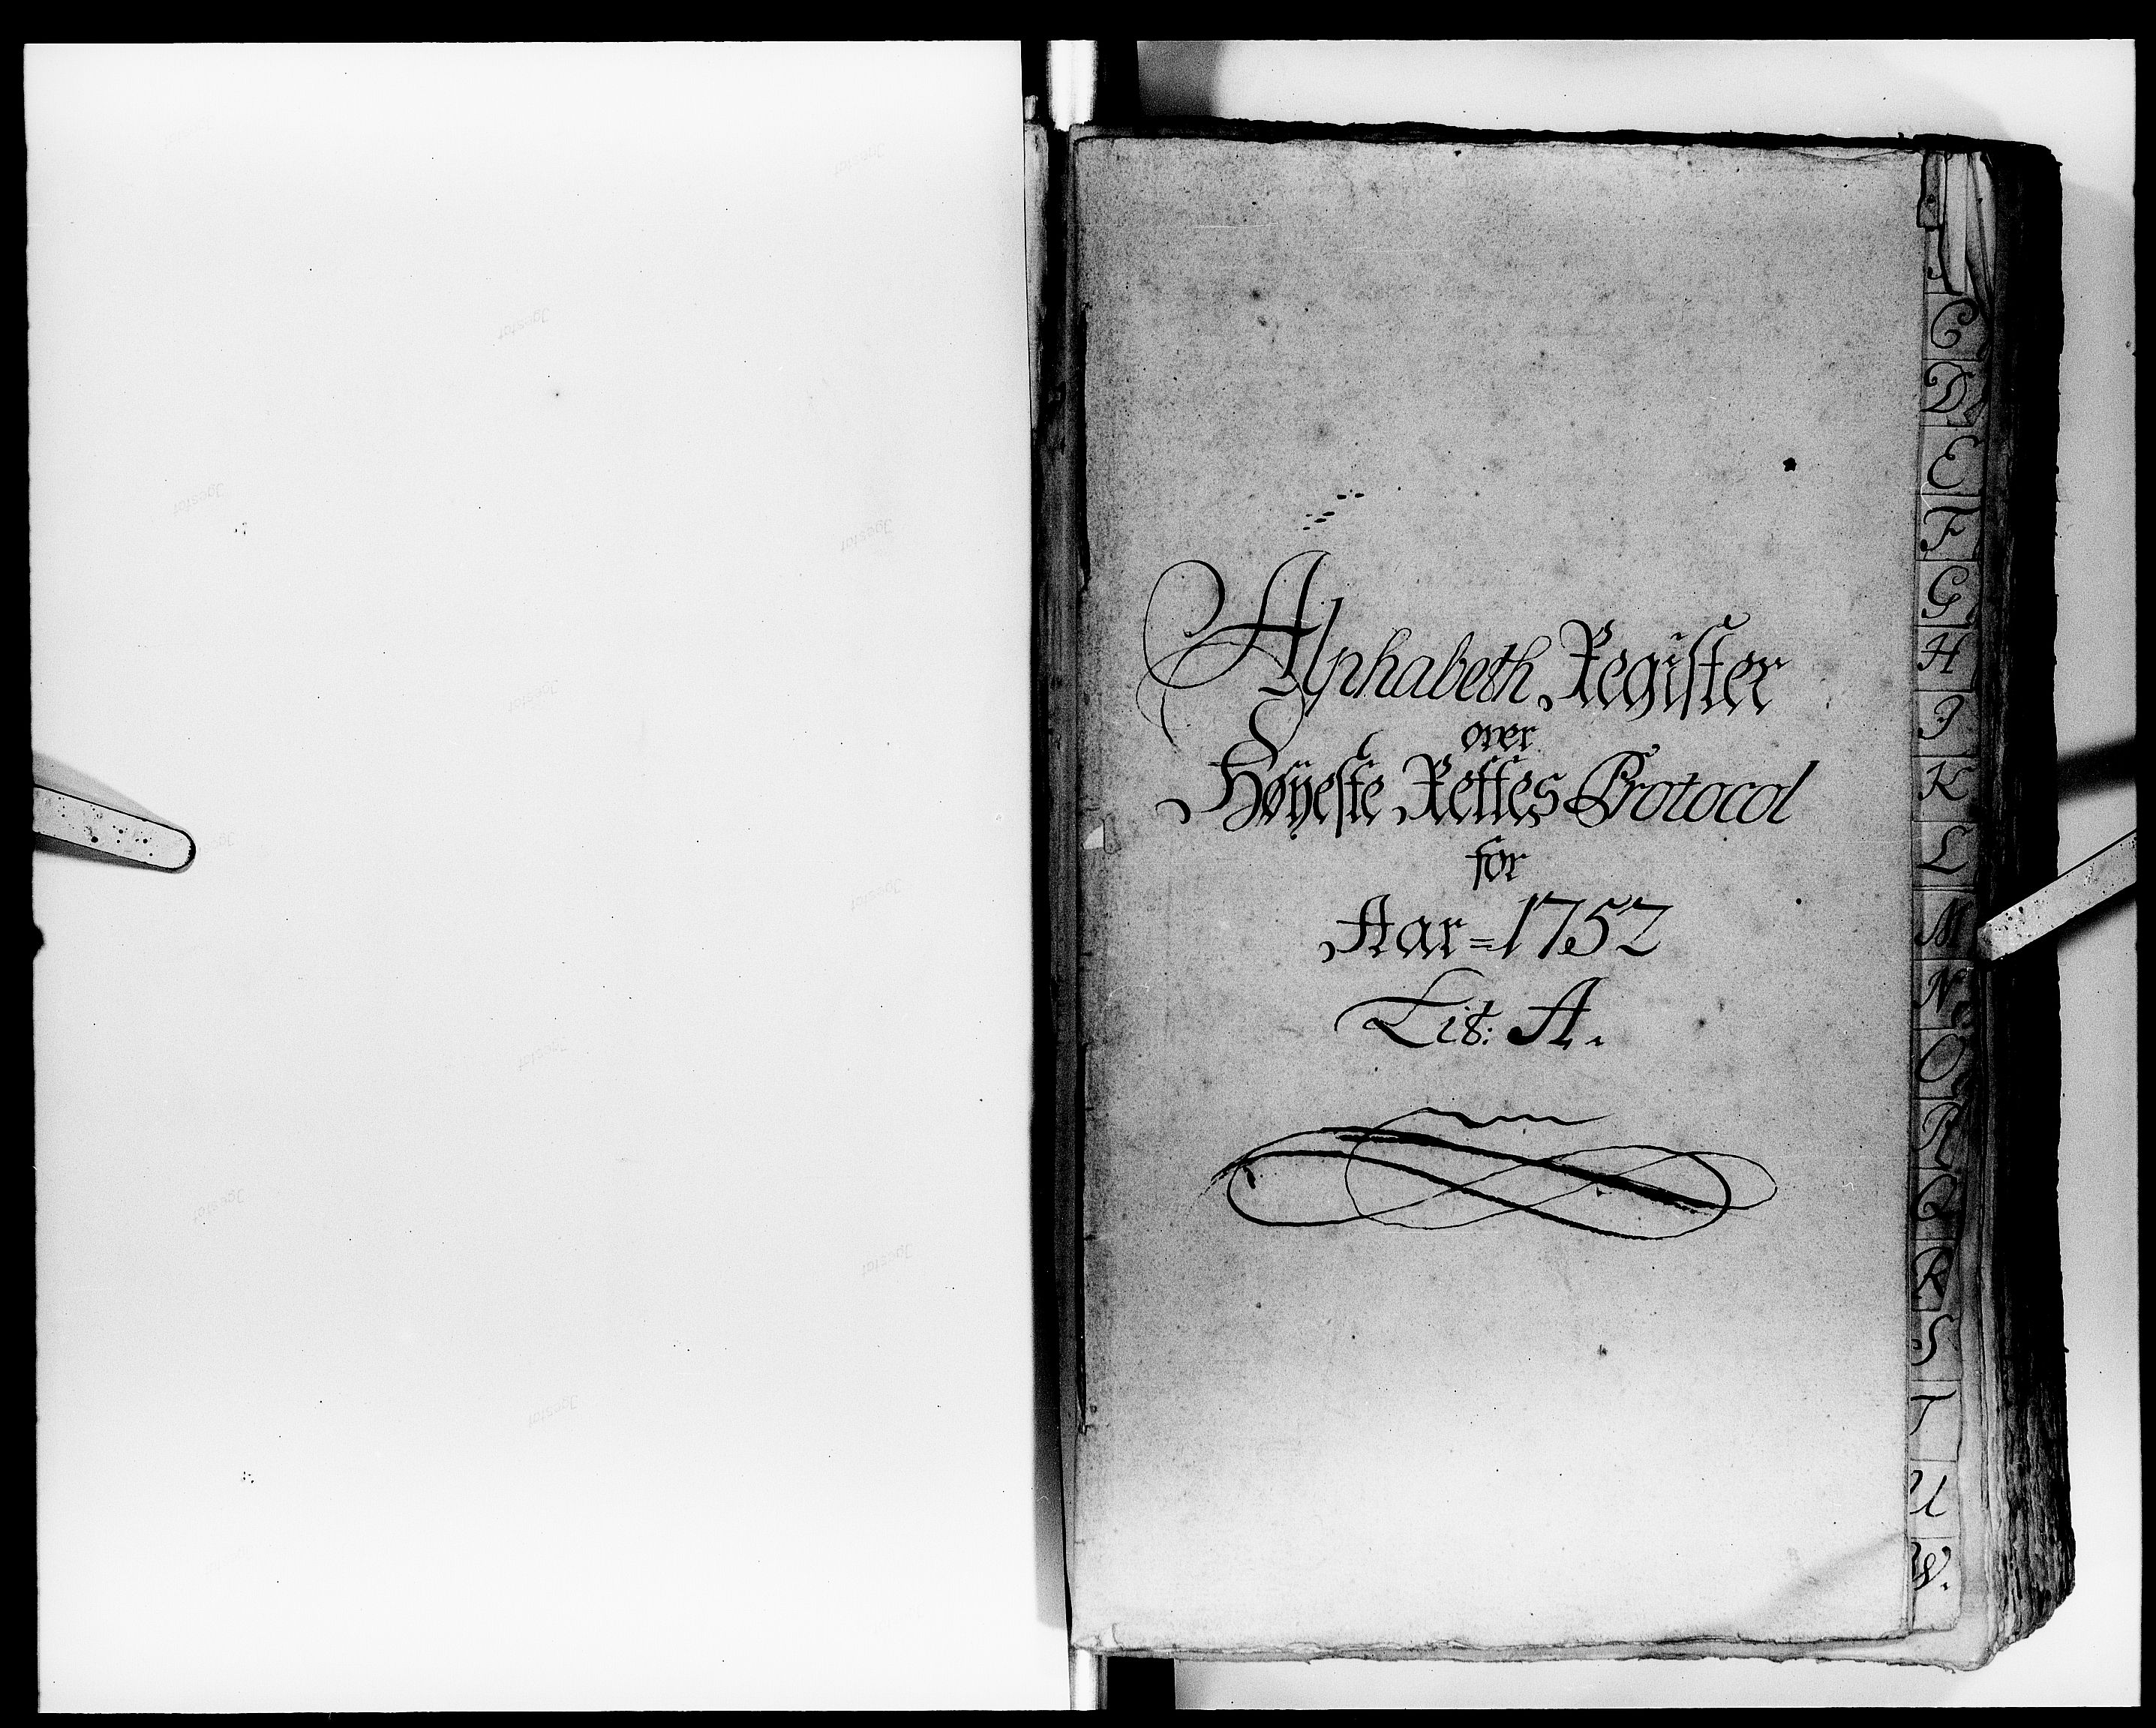 Alphabeth Register
over
Høÿeste Rettes Protocol
for
Aar=1752
Lit: A.
C
D
E
F
G
H
I
K
L
M
N
O
P
Q
R
S
T
U
W.